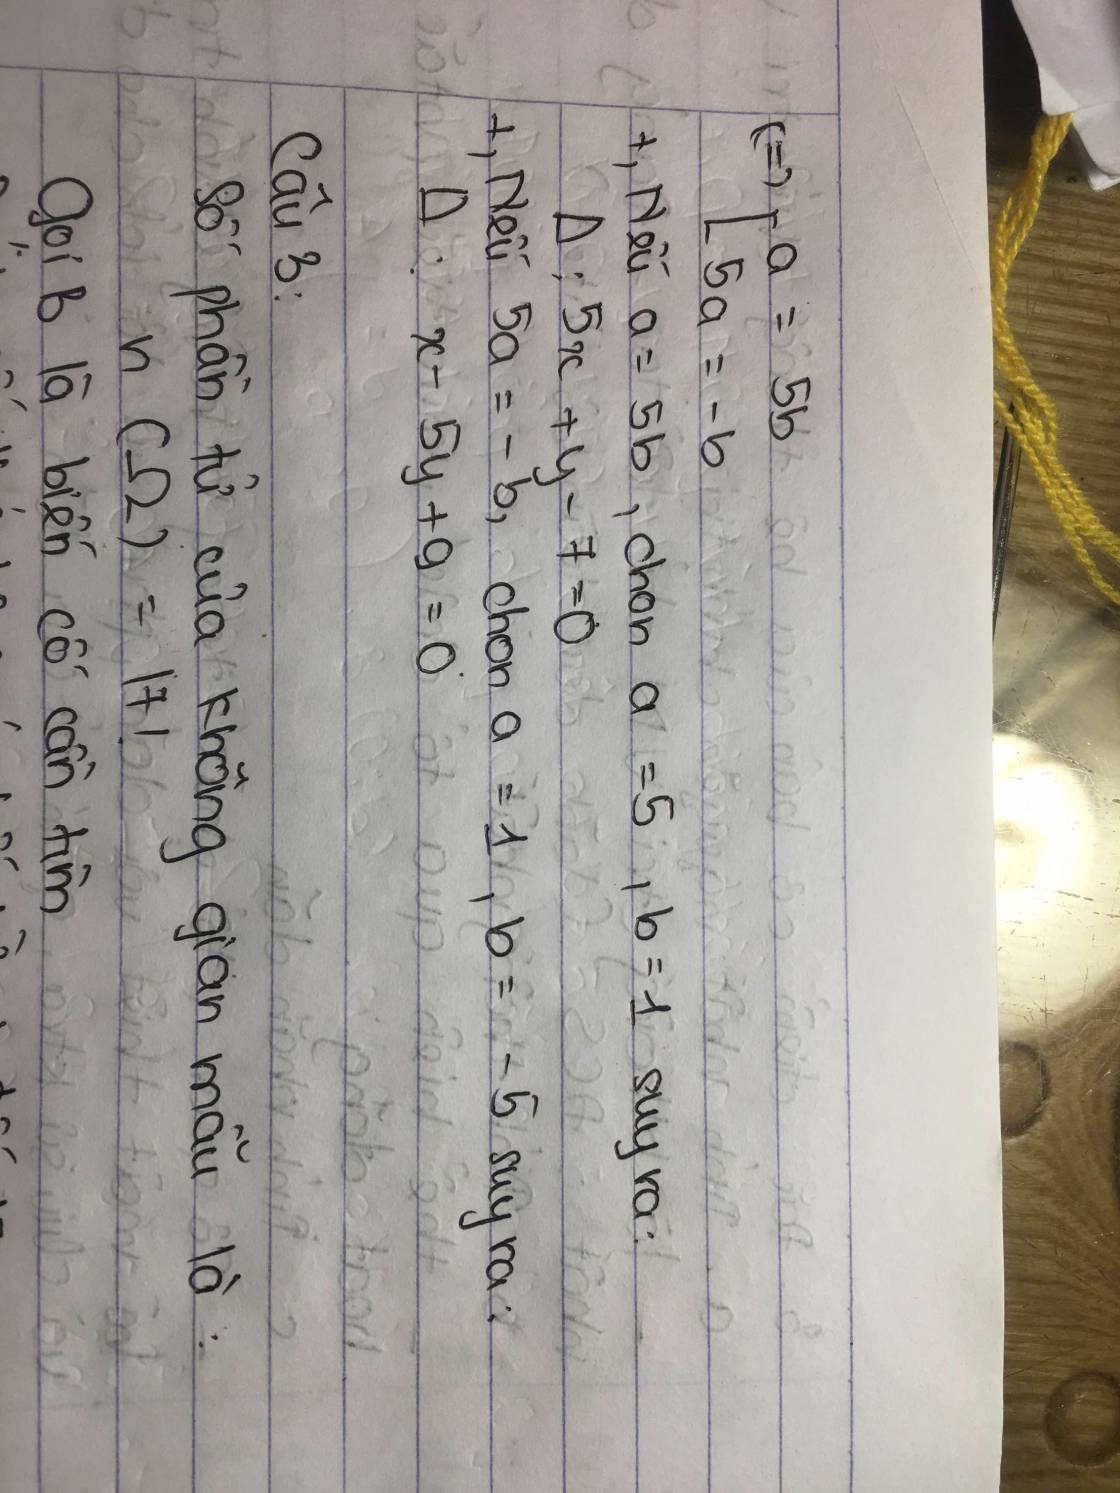 <=> [ a = 5b
[ 5a = -b
+, Nếu a = 5b, chọn a = 5, b = 1 suy ra:
Δ: 5x + y - 7 = 0
+, Nếu 5a = -b, chọn a = 1, b = -5 suy ra:
Δ: x - 5y + 9 = 0
Câu 3:
Số phần tử của không gian mẫu là:
n (Ω) = 17!
Gọi B là biến cố cần tìm